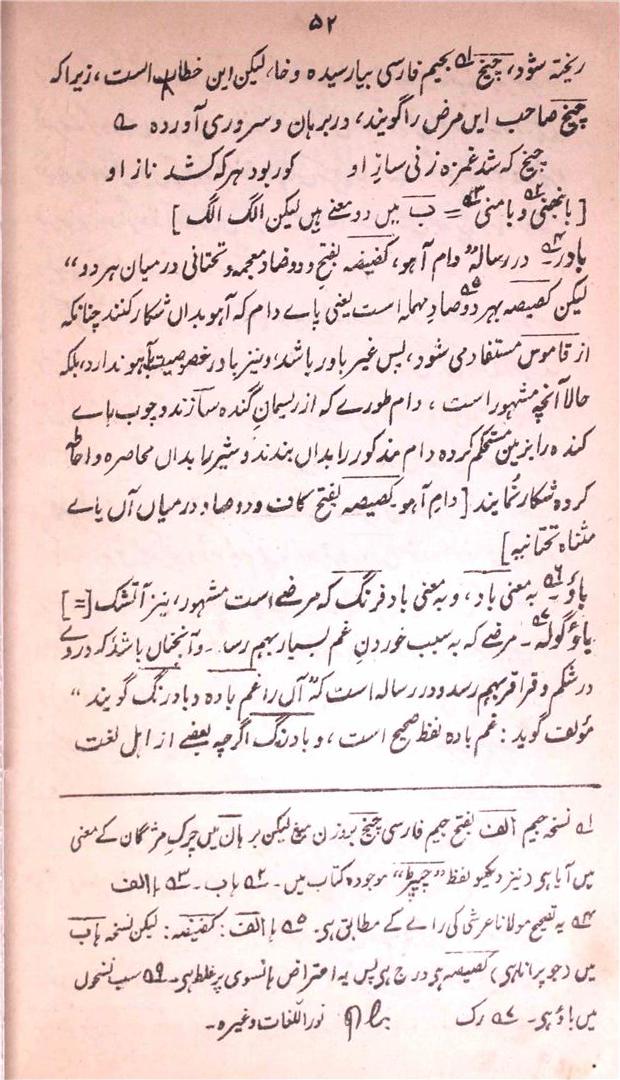 ۵۲
ریختہ شود، چیخ ؎۱ بجیم فارسی بیا رسیدہ و خا، لیکن این خطا است، زیرا کہ
چیخ صاحب ایں مرض را گویند، در برہان و سروری آوردہ ؎
چیخ کہ شد غمزہ زنی سازِ او     کور بود ہر کہ کشد نازِ او
[باچھنی ؎۲ و بامنی ؎۳ = ب میں دو معنے ہیں لیکن الگ الگ]
بادر ؎۴۔ در رسالہ "دام آہو، کضیضہ بفتح و دو ضاد معجمہ و تحتانی درمیان ہر دو"
لیکن کصیصہ ؎۵ بہر دو صادِ مہملہ است یعنی پاے دام کہ آہو بداں شکار کنند چنانکہ
از قاموس مستفاد می شود، پس غیر باور باشد، و نیز بادر خصوصیت بآہو ندارد، بلکہ
حالا آنچہ مشہور است، دام طورے کہ از ریسمانِ گندہ سازند و چوب ہاے
کندہ را بزمین مستحکم کردہ دام مذکور را بداں بندند و شیر را بداں محاصرہ و احاطہ
کردہ شکار نمایند [دامِ آہو کصیصہ بفتح کاف و دو صاد درمیاں آں یاے
مثناہ تحتانیہ]
باؤ ؎۶۔ بہ معنی باد، و بہ معنی باد فرنگ کہ مرضے است مشہور، نیز آتشک [=]
باؤ گولہ ؎۷۔ مرضے کہ بہ سبب خوردنِ غم بسیار بہم رسد۔ و آنچناں باشد کہ دردے
در شکم و قراقر بہم رسد و در رسالہ است کہ "آں را غم بادہ و بادرنگ گویند"
مؤلف گوید: غم بادہ لفظ صحیح است، و بادرنگ اگرچہ بعضے از اہل لغت
؎۱ نسخہ جیم الف بفتح جیم فارسی چیخ بروزن میغ لیکن برہان میں چرکِ مژگان کے معنی
میں آیا ہی دنیز دیکھو لفظ "چیپڑ" موجودہ کتاب میں۔ ؎۲ باب۔ ؎۳ با الف
؎۴ یہ تصحیح مولانا عرشی کی راے کے مطابق ہی۔ ؎۵ با الف: کضیضہ: لیکن نسخہ باب
میں (جو پرانا ہی) کصیصہ ہی درج ہی پس یہ اعتراض ہانسوی پر غلط ہی۔ ؎۶ سب نسخوں
میں باؤ ہی۔ ؎۷ رک     نور اللغات وغیرہ۔